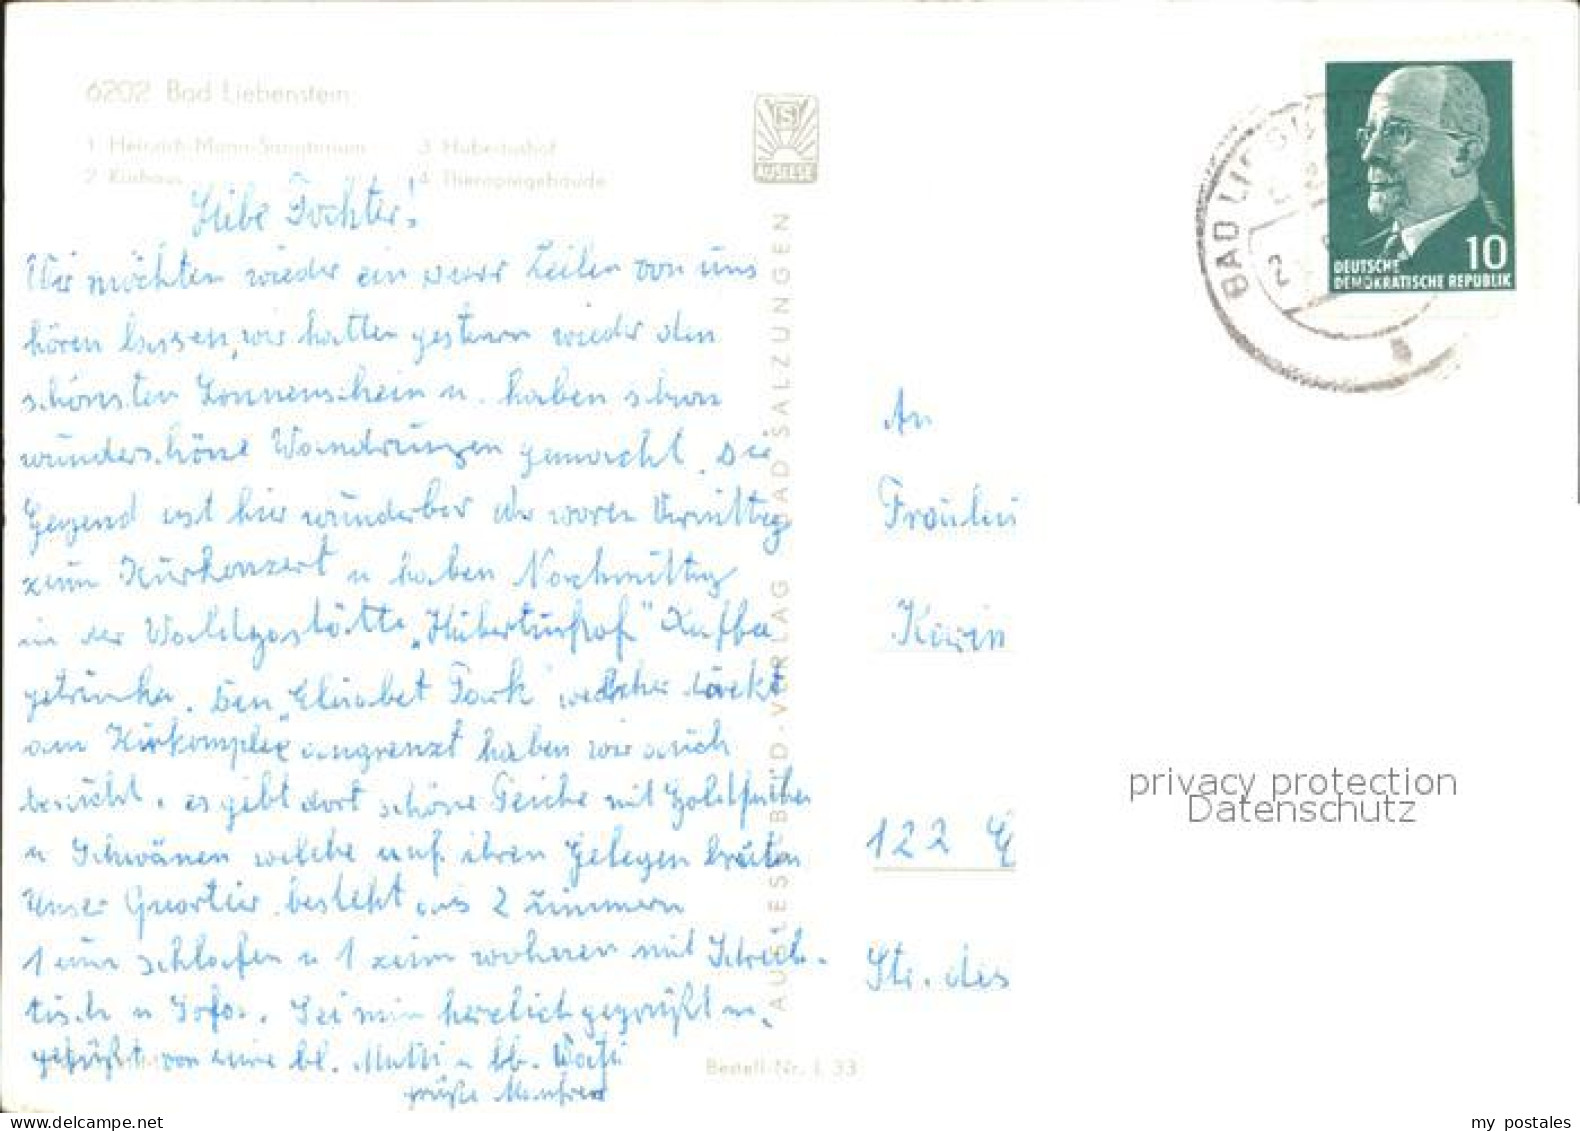 6202 Bad Liebenstein
1 Heinrich-Mann-Sanatorium 3 Hubertushof
2 Kurhaus 4 Therapiegebäude
AUSLESE
Liebe Tochter!
Wir möchten wieder ein Zeilen von uns
hören lassen, wir hatten gestern wieder den
schönsten Sonnenschein u. haben schon
wunderschöne Wandrungen gemacht. Die
Gegend ist hier wunderbar wir waren Vormittag
zum Kurkonzert u haben Nachmittag
in der Waldgaststätte "Hubertushof" Kaffee
getrunken. Den "Elisabet Park" welcher direkt
am Kurkomplex angrenzt haben wir auch
besucht. es gibt dort schöne Teiche mit Goldfischen
u Schwänen welche auf ihren Gelegen brüten
Unser Quartier besteht aus 2 Zimmern
1 zum schlafen u 1 zum wohnen mit Schreib-
tisch u Sofa. Sei nun herzlich gegrüßt u.
geküßt von deine lb. Mutti u lb. Vati
grüße Manfred
AUSLESE-BILD-VERLAG BAD SALZUNGEN
Bestell-Nr. L 33
BAD LIEBEN
2
10
DEUTSCHE
DEMOKRATISCHE REPUBLIK
An
Fräulein
Karin
122 E
Str. des
privacy protection
Datenschutz
www.delcampe.net
my postales